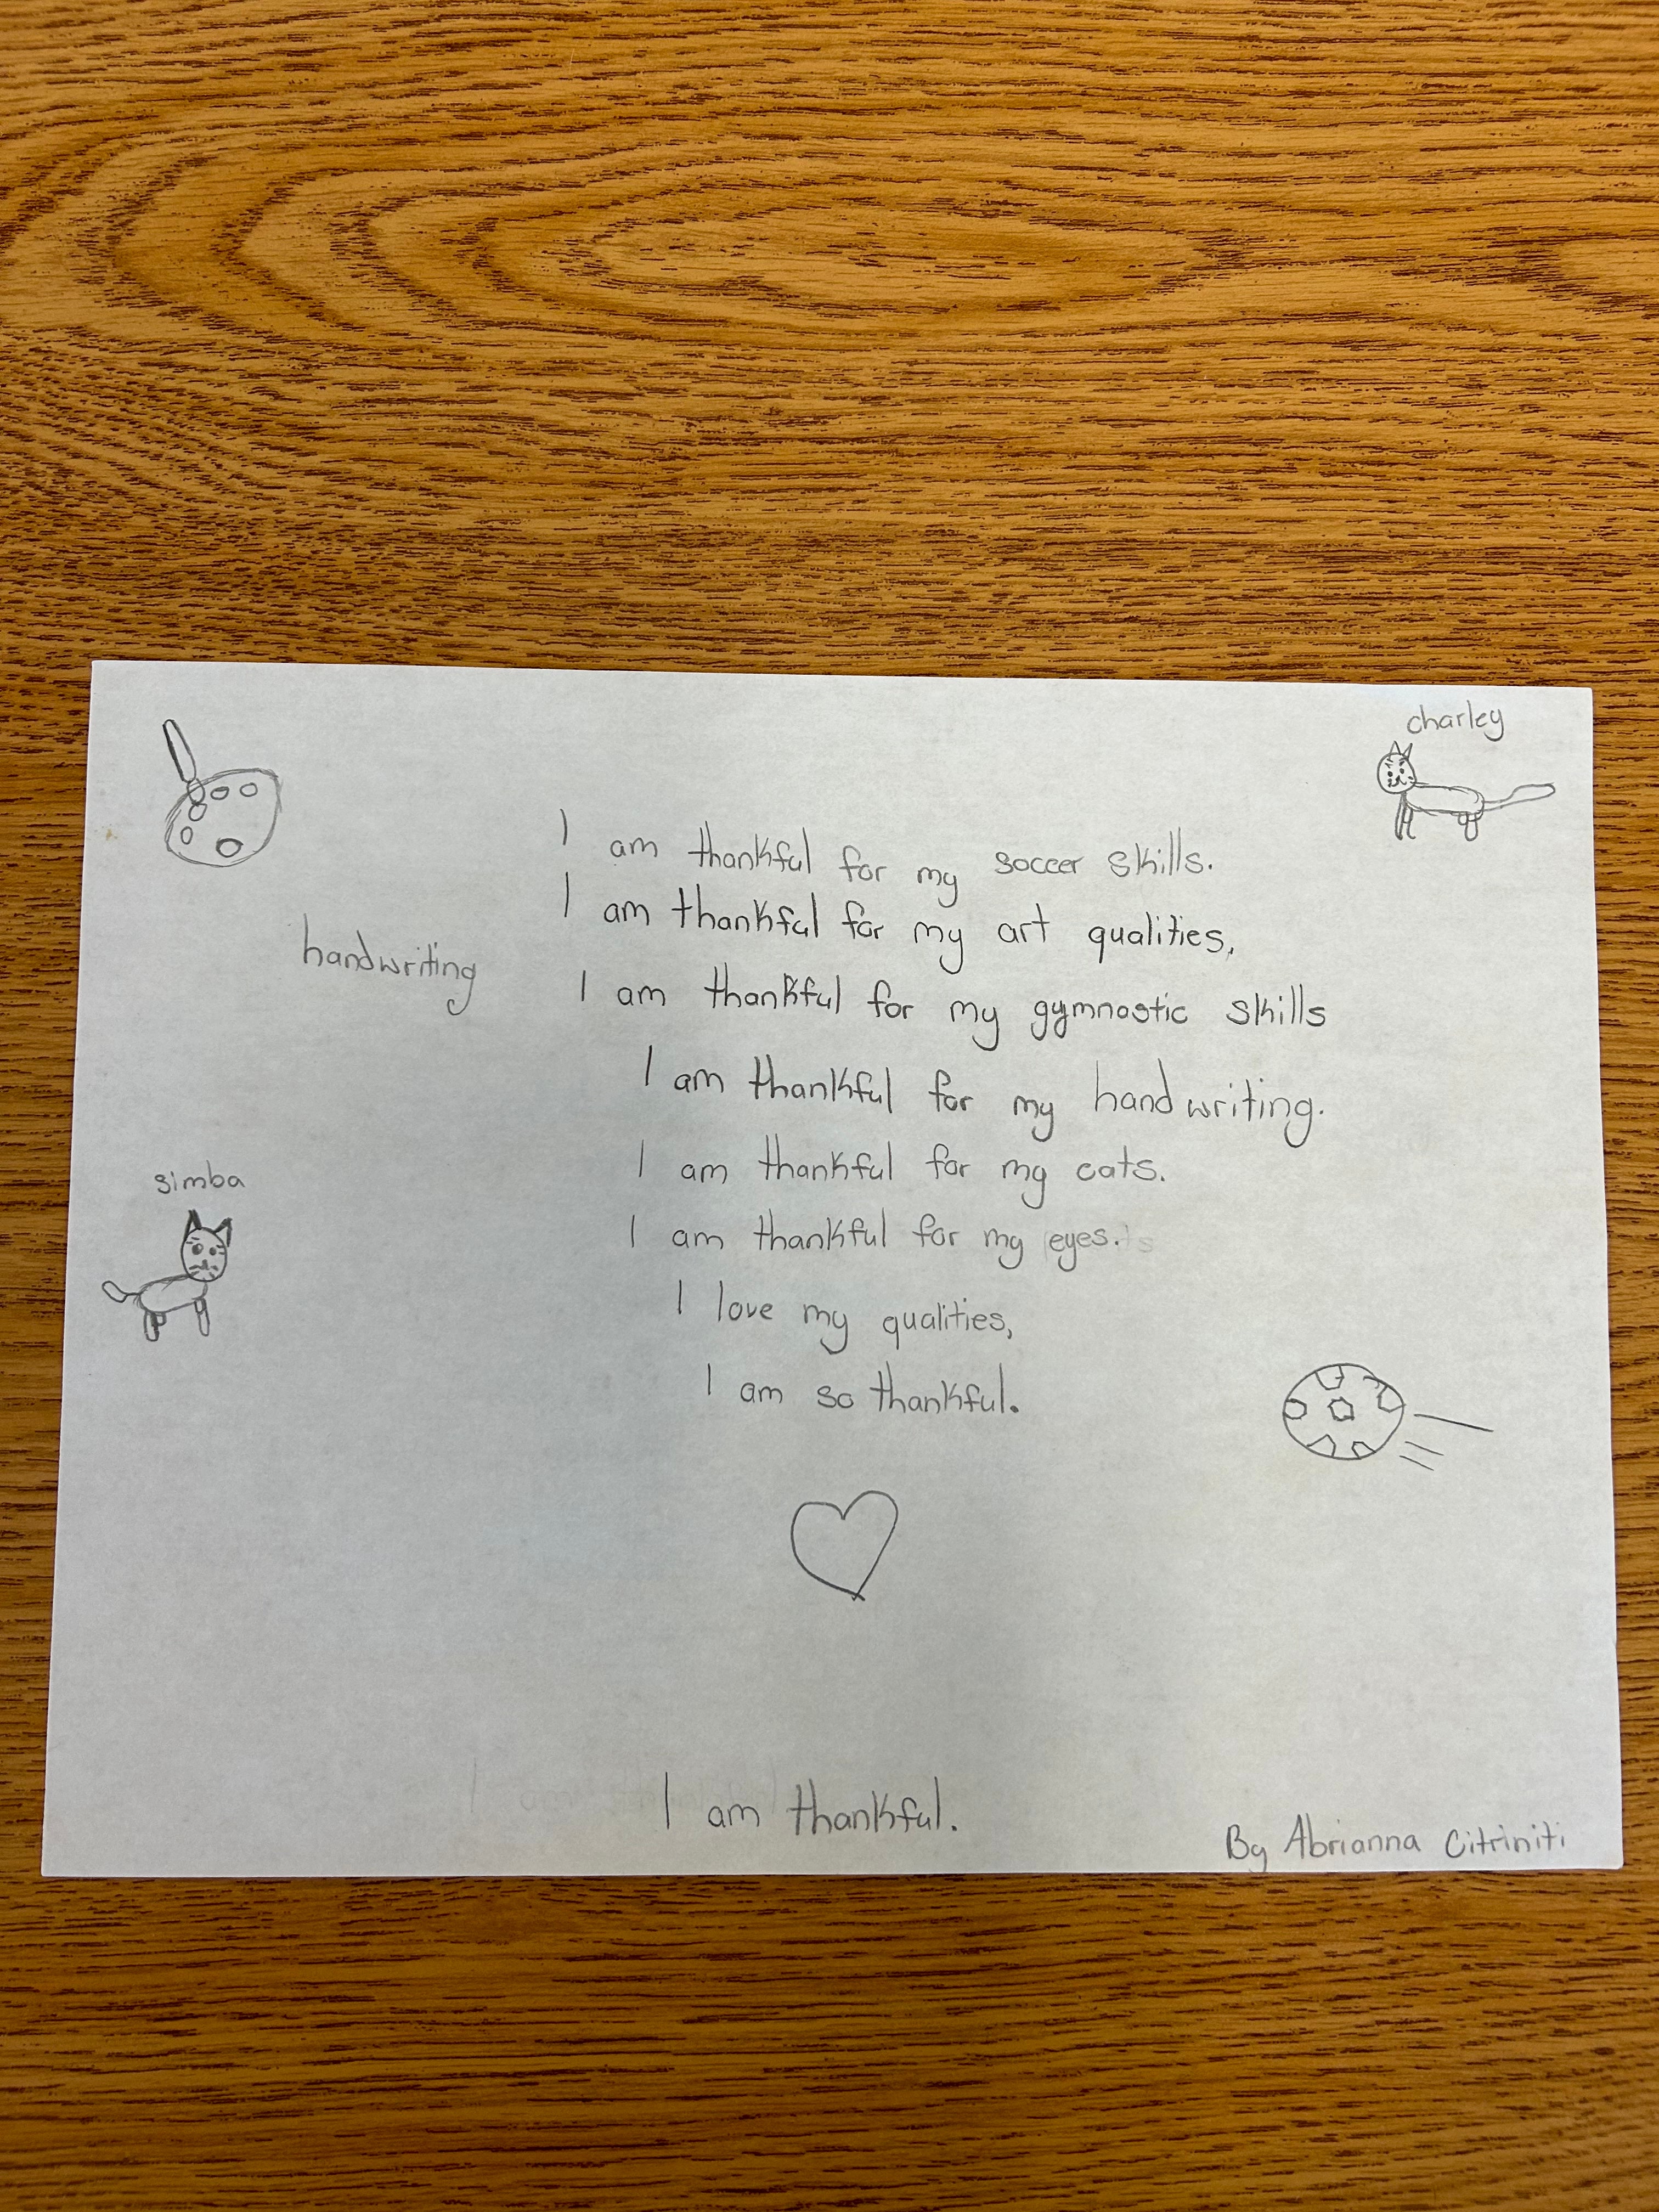 charley
I am thankful for my soccer skills.
I am thankful for my art qualities,
handwriting
I am thankful for my gymnastic skills
I am thankful for my handwriting.
I am thankful for my cats.
simba
I am thankful for my eyes.
I love my qualities,
I am so thankful.
I am thankful.
By Abrianna Citriniti